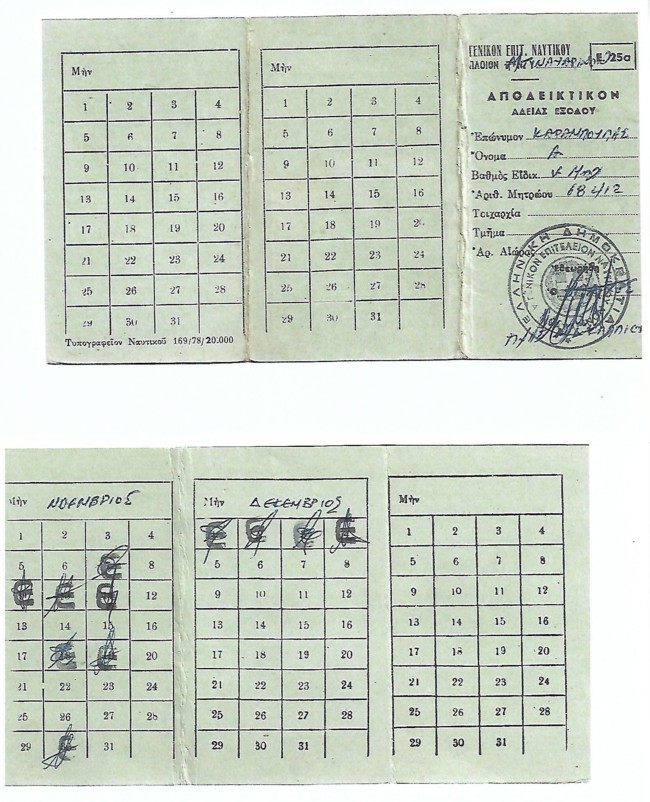 Μὴν
1 2 3 4
5 6 7 8
9 10 11 12
13 14 15 16
17 18 19 20
21 22 23 24
25 26 27 28
29 30 31
Τυπογραφεῖον Ναυτικοῦ 169/78/20.000
Μὴν
1 2 3 4
5 6 7 8
9 10 11 12
13 14 15 16
17 18 19 20
21 22 23 24
25 26 27 28
29 30 31
ΓΕΝΙΚΟΝ ΕΠΙΤ. ΝΑΥΤΙΚΟΥ
ΠΛΟΙΟΝ
Ε 25α
ΑΠΟΔΕΙΚΤΙΚΟΝ
ΑΔΕΙΑΣ ΕΞΟΔΟΥ
Ἐπώνυμον ΚΑΡΑΜΠΟΥΠΑΣ
Ὄνομα Α
Βαθμὸς Εἰδικ.
Ἀριθ. Μητρώου
Τοιχαρχία
Τμῆμα
Ἀρ. Αἰώρας
Ἐθεωρήθη
Ο
ΕΛΛΗΝΙΚΗ ΔΗΜΟΚΡΑΤΙΑ
ΓΕΝΙΚΟΝ ΕΠΙΤΕΛΕΙΟΝ ΝΑΥΤΙΚΟΥ
Μὴν ΝΟΕΜΒΡΙΟΣ
1 2 3 4
5 6 8
12
13 14 15 16
17 20
21 22 23 24
25 26 27 28
29 31
Μὴν ΔΕΚΕΜΒΡΙΟΣ
5 6 7 8
9 10 11 12
13 14 15 16
17 18 19 20
21 22 23 24
25 26 27 28
29 30 31
Μὴν
1 2 3 4
5 6 7 8
9 10 11 12
13 14 15 16
17 18 19 20
21 22 23 24
25 26 27 28
29 30 31